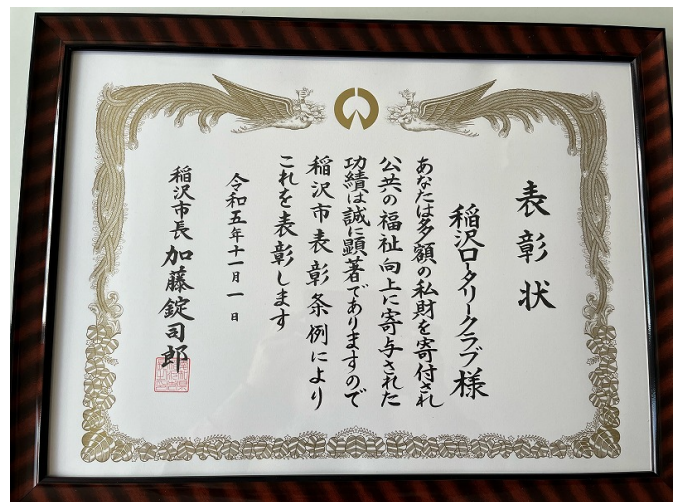 表彰状
稲沢ロータリークラブ様
あなたは多額の私財を寄付され
公共の福祉向上に寄与された
功績は誠に顕著でありますので
稲沢市表彰条例により
これを表彰します
令和五年十一月一日
稲沢市長 加藤錠司郎